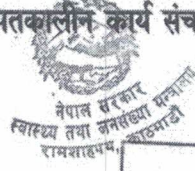 पतकालीन कार्य संच
नेपाल सरकार
स्वास्थ्य तथा जनसंख्या मन्त्रालय
रामशाहपथ, काठमाडौं